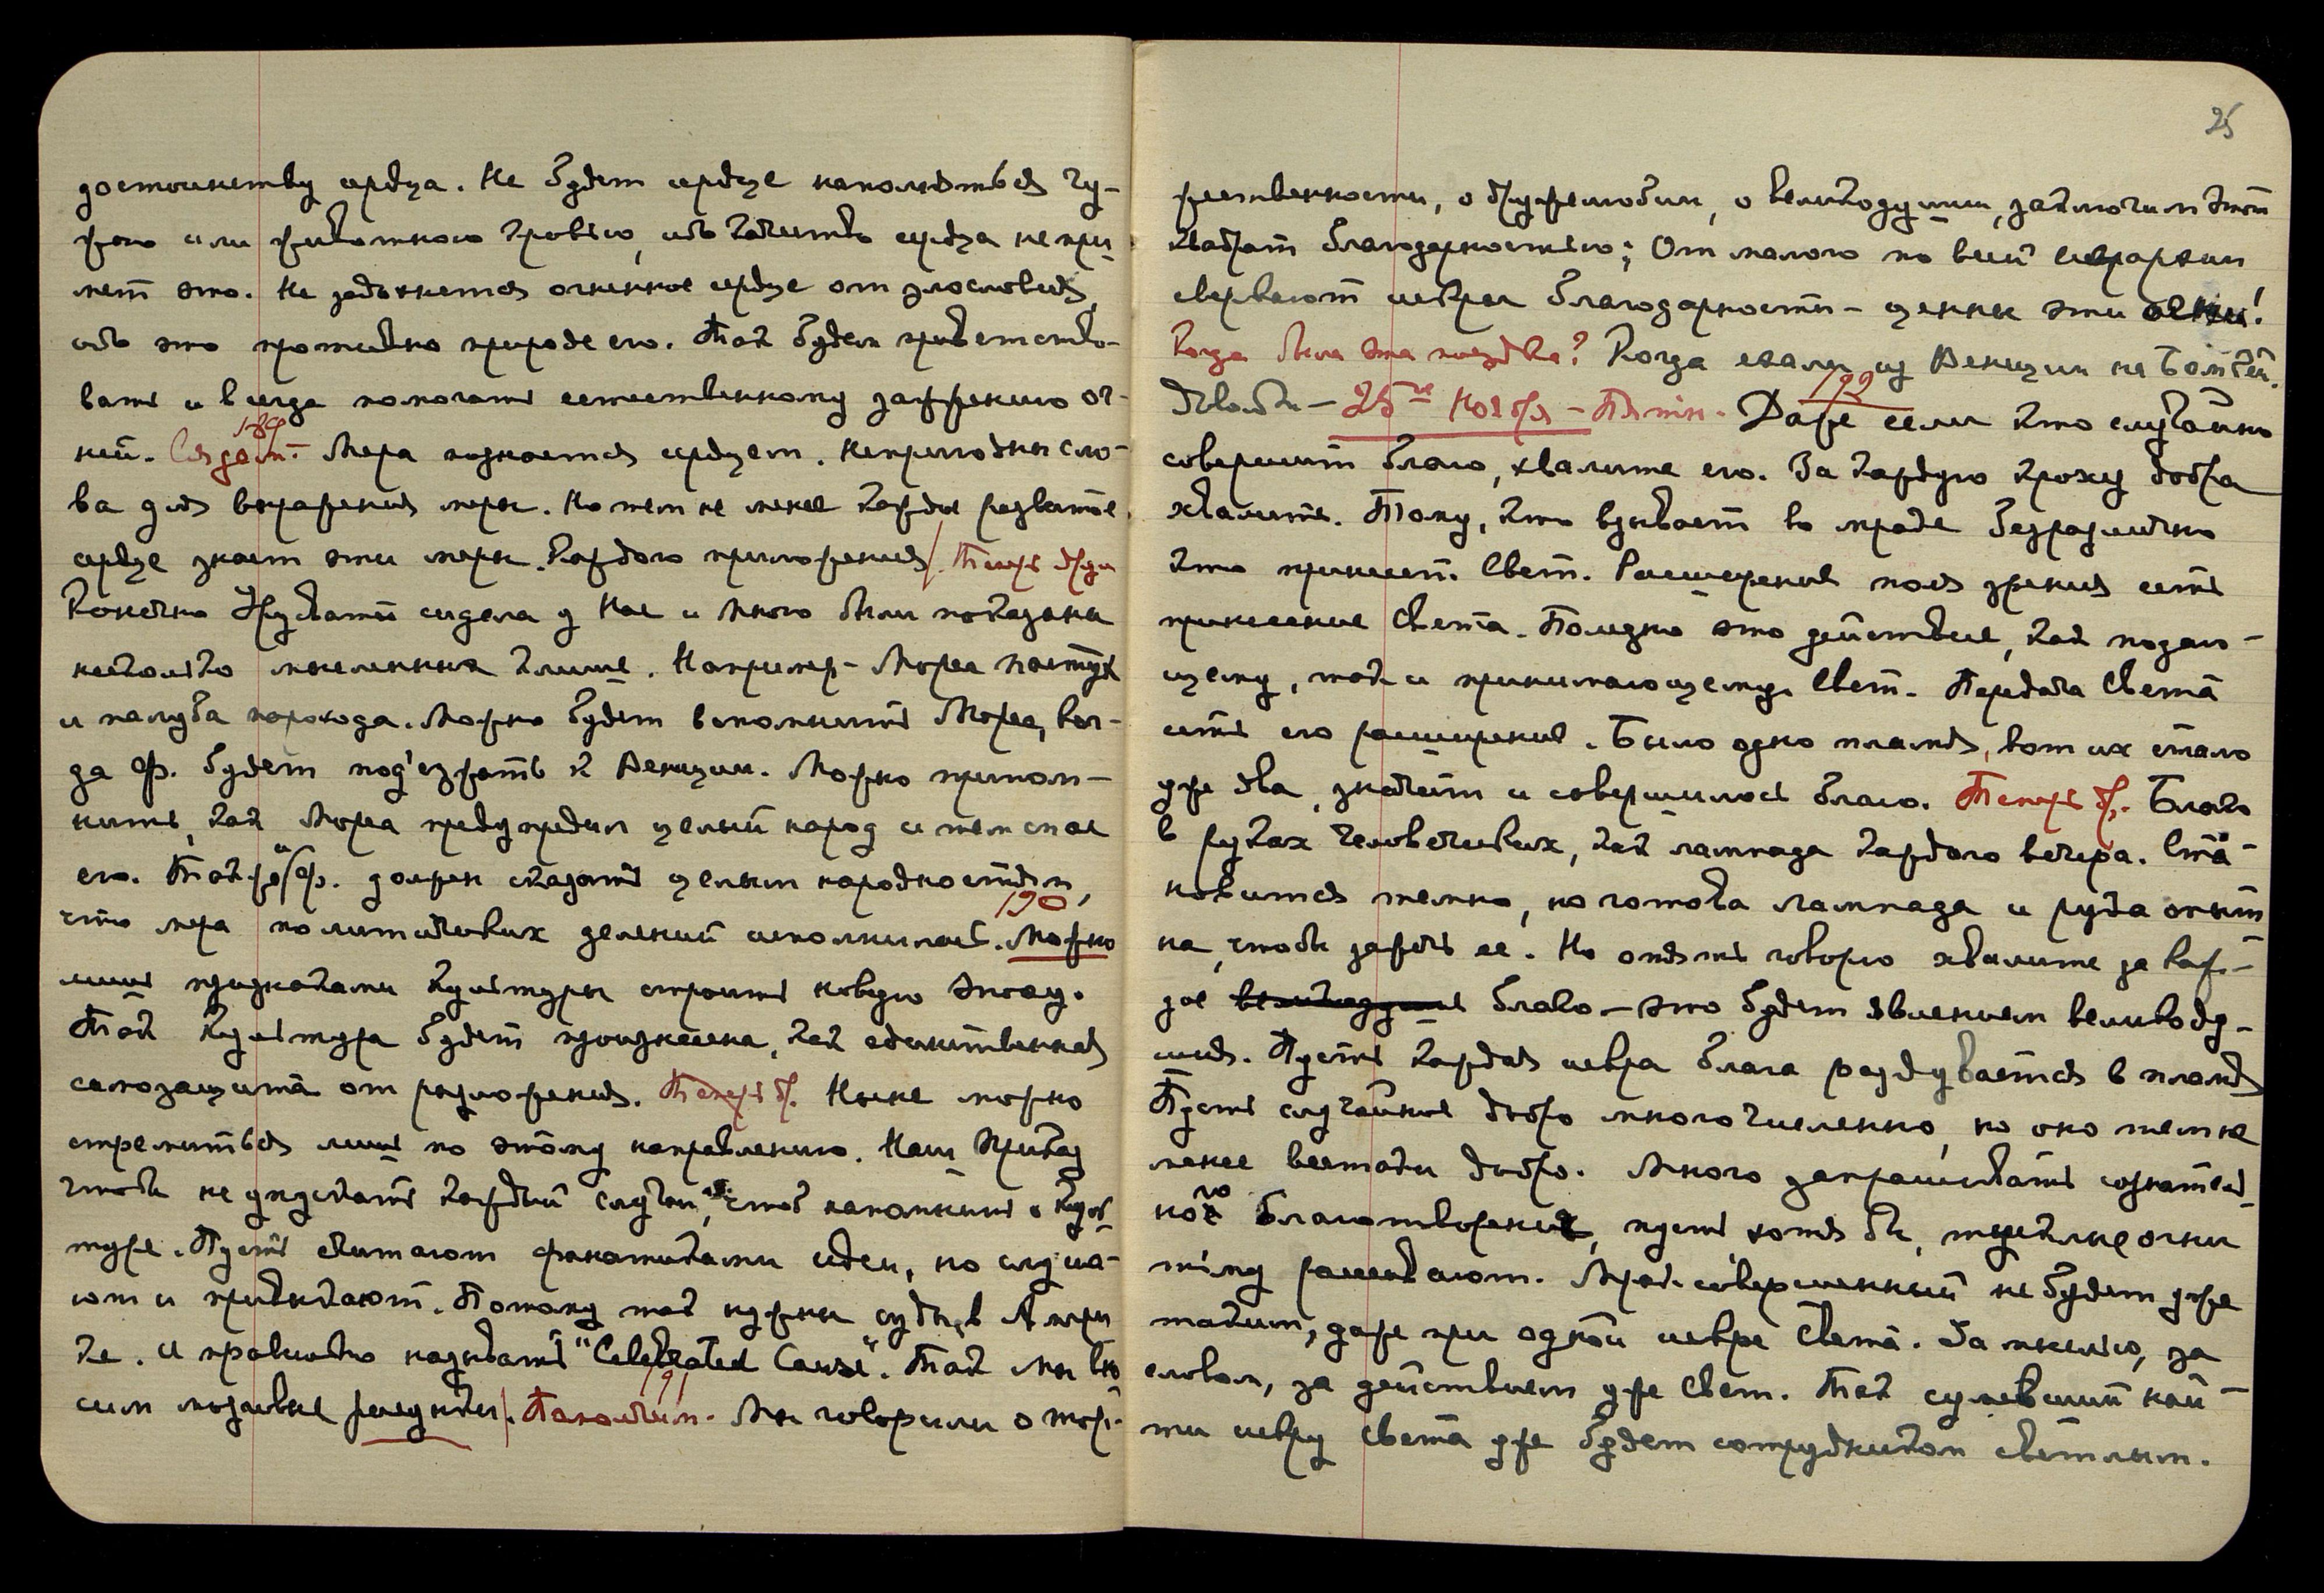 достоинству сердца. Не будет сердце наполняться чу-
жою или животною кровью, ибо качество сердца не при
мет это. Не задохнется огненное сердце от злословия,
ибо это противно природе его. Так будем приветство-
вать и всегда помогать естественному зажжению ог-
189
ней. Сядем. Мера познается сердцем. Непригодны сло-
ва для выражения меры. Но тем не менее каждое развитое
сердце знает эти меры каждого приложения. Теперь други
Конечно Урусвати сидела у Нас и много были показаны
несколько мысленных клише. Например - Мория пастух
и палуба парохода. Можно будет вспомнить Мория, ког-
да Ф. будет под'езжать к Венеции. Можно припом-
нить, как Мория предупредил целый народ и тем спас
его. Также и Ф. должен сказать целым народностям,
190
что мера политических делений исполнилась. Можно
лишь признаками культуры строить новую эпоху.
Так культура будет произнесена, как единственная
самозащита от разложения. Теперь др. Ныне можно
стремиться лишь по этому направлению. Наш Приказ
чтобы не упускать каждый случай, чтоб напомнить о куль-
туре. Пусть считают фанатиками идеи, но слуша-
ют и привыкают. Потому так нужны суды, в Амери
ке. И правильно называть "Celebrated Cause". Так мы вно
191
сим мозаичные рисунки. Помолчим. Мы говорили о торж-
25
жественности, о дружелюбии, о великодушии, заключим этот
квадрат благодарностью; От малого по всей Иерархии
сверкают искры благодарности - ценны эти огни!
Когда была эта поездка? Когда ехали из Венеции на Бомбей.
192
Довольно - 25го Ноября - Пятн. Даже если кто случайно
совершит благо, хвалите его. За каждую кроху добра
хвалите. Тому, кто взывает во мраке безразлично
кто принесет Свет. Расширение поля зрения есть
принесение Света. Полезно это действие, как подаю-
щему, так и принимающему Свет. Передача Света
есть его расширение. Было одно пламя, вот их стало
уже два, значит и совершилось благо. Теперь др. Благо
в руках человеческих, как лампада каждого вечера. Ста-
новится темно, но готова лампада и рука опыт
на, чтобы зажечь ее. Но опять говорю хвалите за каж-
дое благо - это будет явлением великоду-
шия. Пусть каждая искра блага раздувается в пламя
Пусть случайное добро многочисленно, но оно тем не
менее все-таки добро. Много запрашивать сознатель-
ного благотворения, пусть хотя бы, мерцающие огни
тьму рассекают. Мрак совершенный не будет уже
таким, даже при одной искре Света. За мыслью, за
словом, за действием уже Свет. Так сумевший най-
ти искру Света уже будет сотрудником светлым.